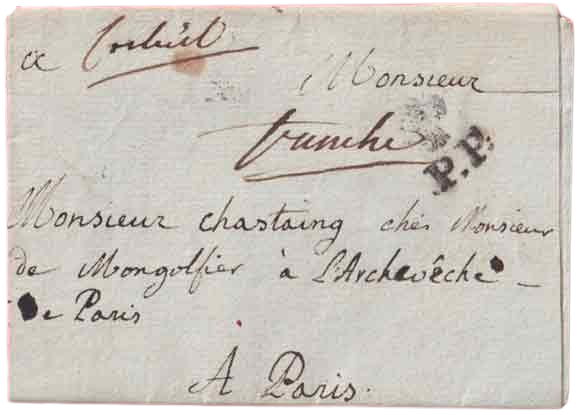 a Corbeil
Monsieur
franche
P.P.
Monsieur chastaing ches Monsieur
de Mongolfier à L'Archevêché
de Paris
A Paris.